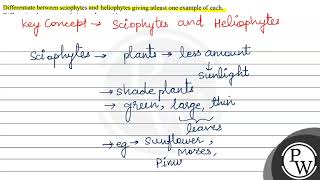 Differentiate between sciophytes and heliophytes giving atleast one example of each.
Key Concept → Sciophytes and Heliophytes
Sciophytes → plants → less amount
↓
sunlight
→ shade plants
→ green, large, thin
leaves
→ eg → Sunflower,
Moses,
Pinus
PW